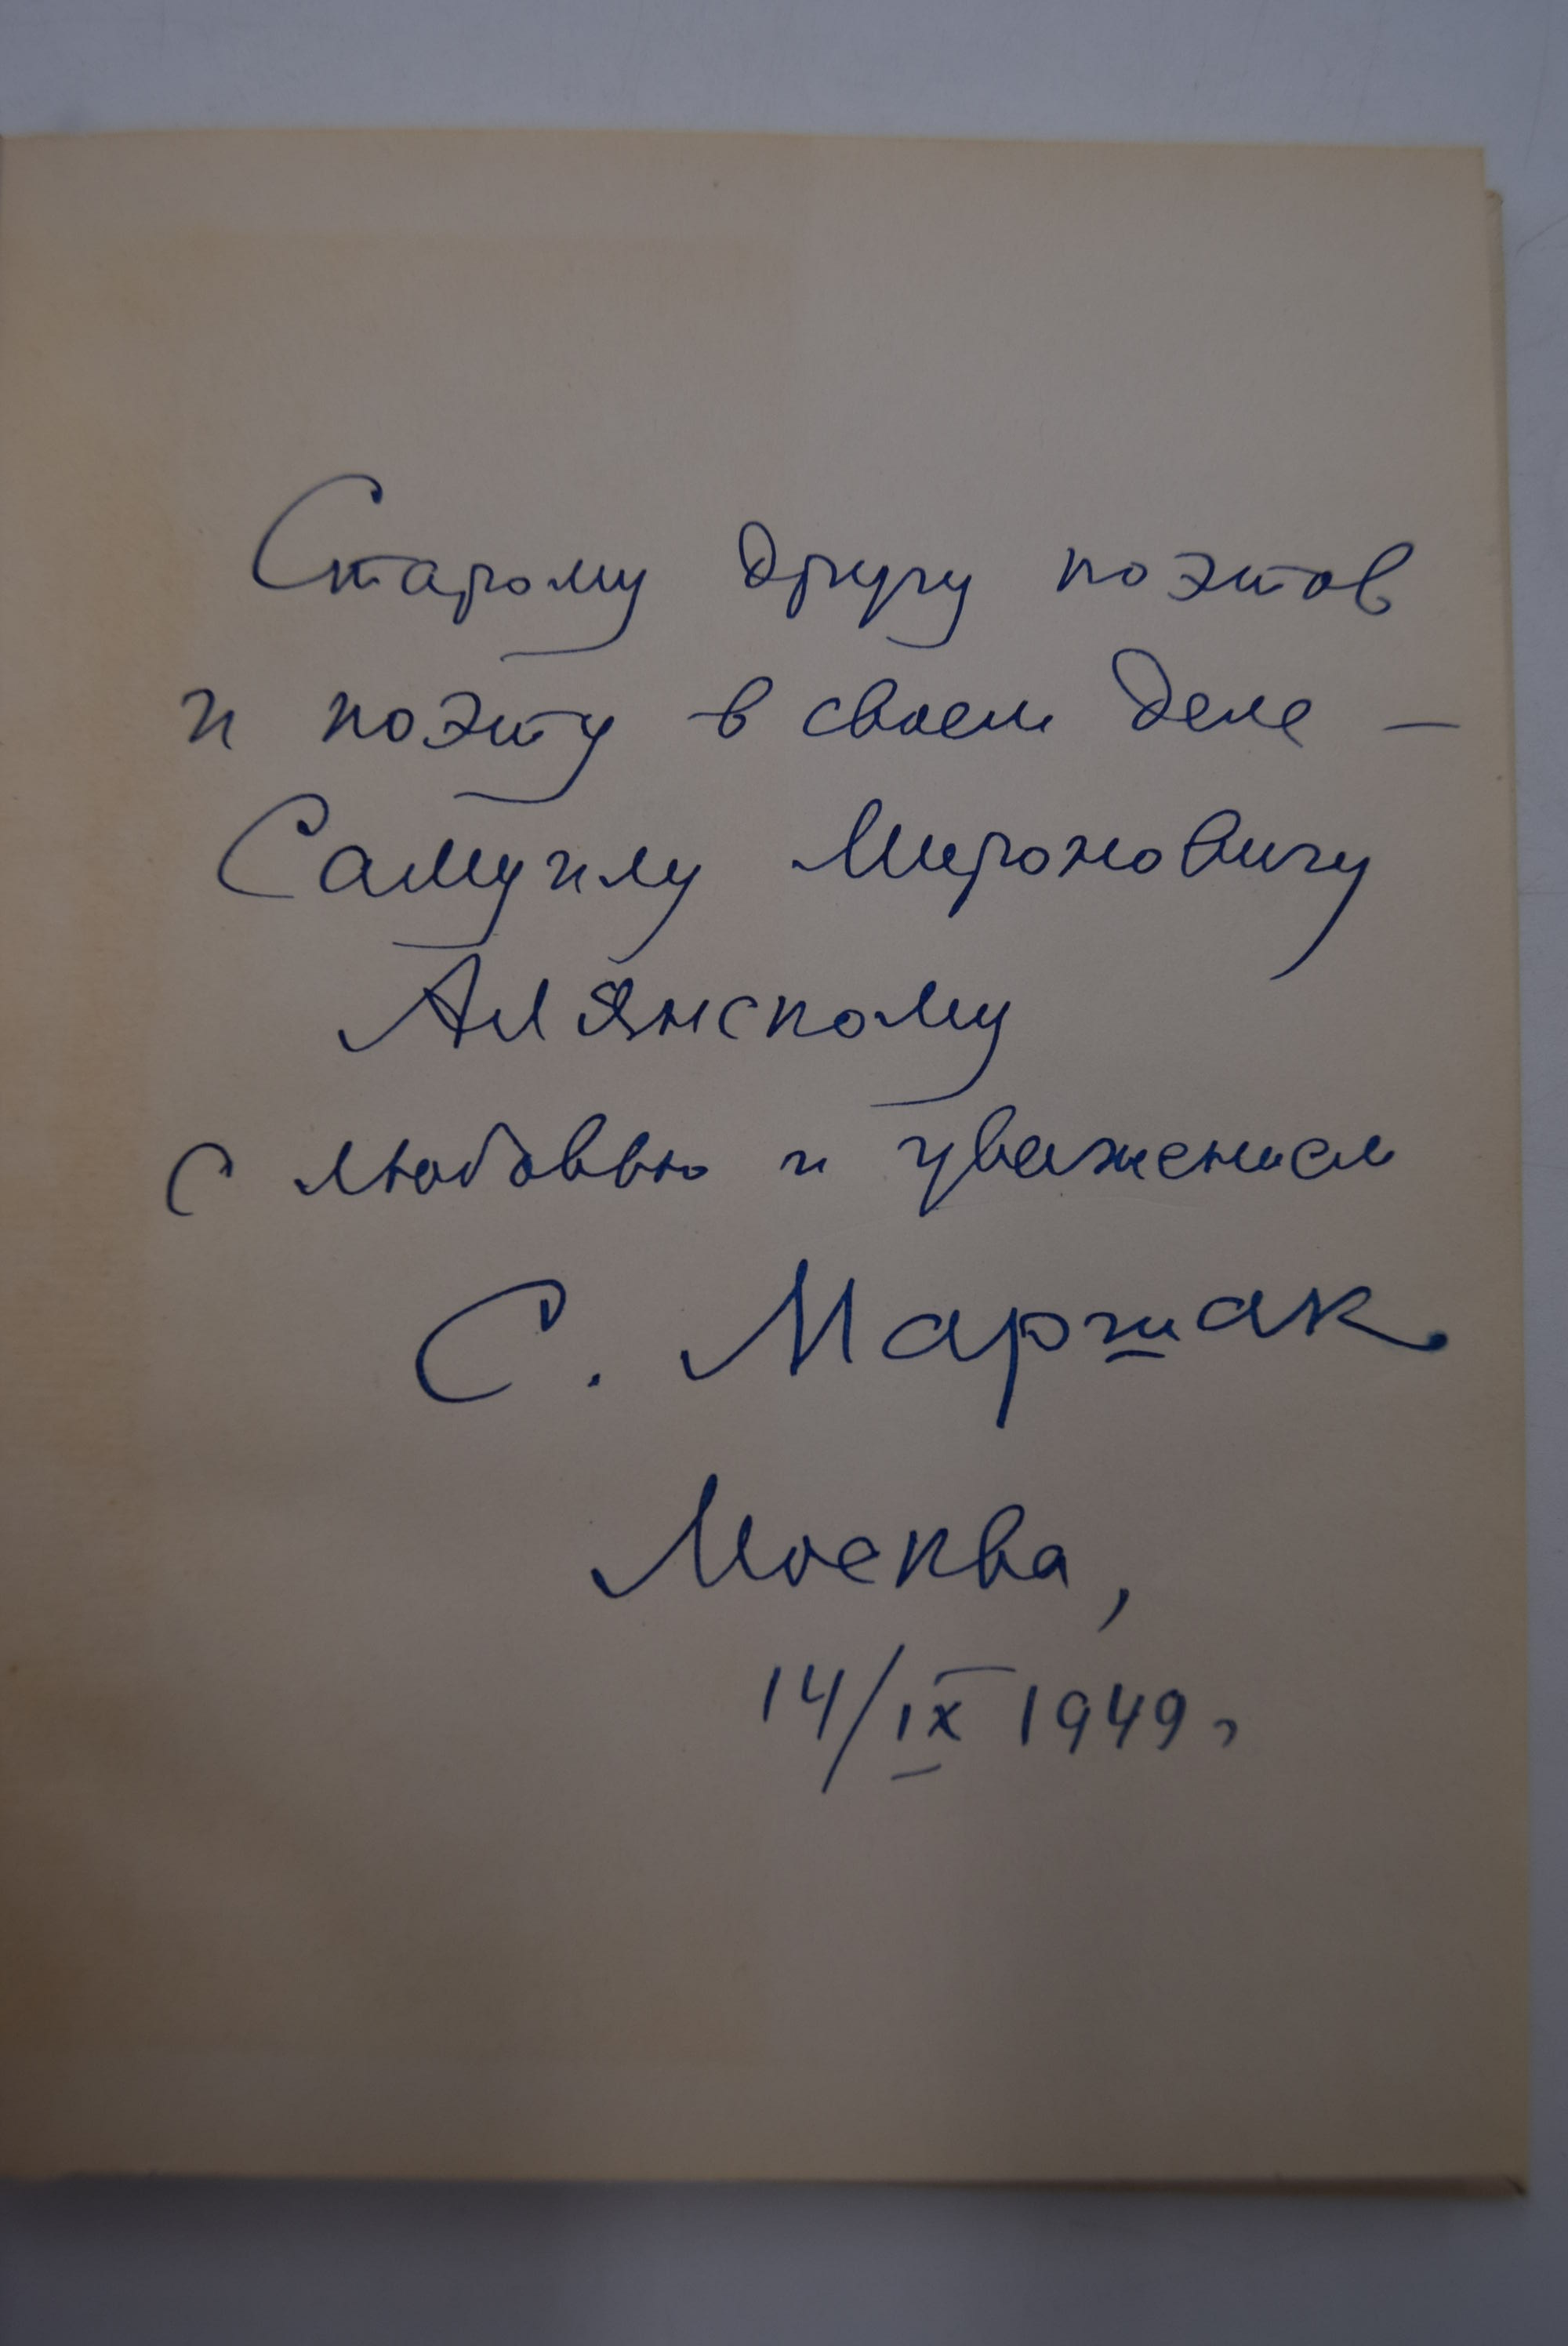 Старому другу поэтов
и поэту в своем деле —
Самуилу Мироновичу
Алянскому
с любовью и уважением
С. Маршак
Москва,
14/IX 1949 г